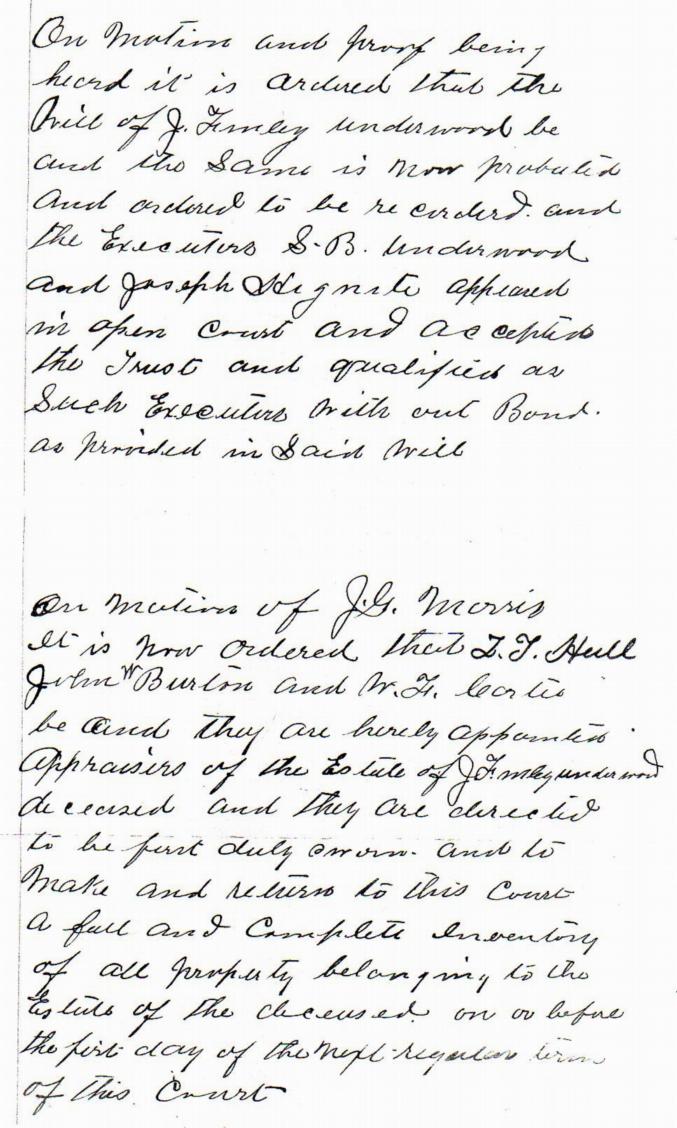 On Motion and proof being
heard it is ordered that the
Will of J. Finley Underwood be
and the Same is Now probated
And ordered to be recorderd. and
the Executors S. B. Underwood
and Joseph Hignite appeared
in open Court and accepted
the Trust and qualified as
Such Executors With out Bond.
as provided in Said Will
On Motion of J.G. Morris
It is Now ordered that Hull
John W Burton and W. F.
be and they are hereby appointed
Appraisers of the Estate of J Finley underwood
deceased and they are directed
to be first duly sworn. and to
Make and return to this Court
A full and Complete Inventory
of all property belonging to the
Estate of the deceased. on or before
the first day of the Next regular term
of this Court